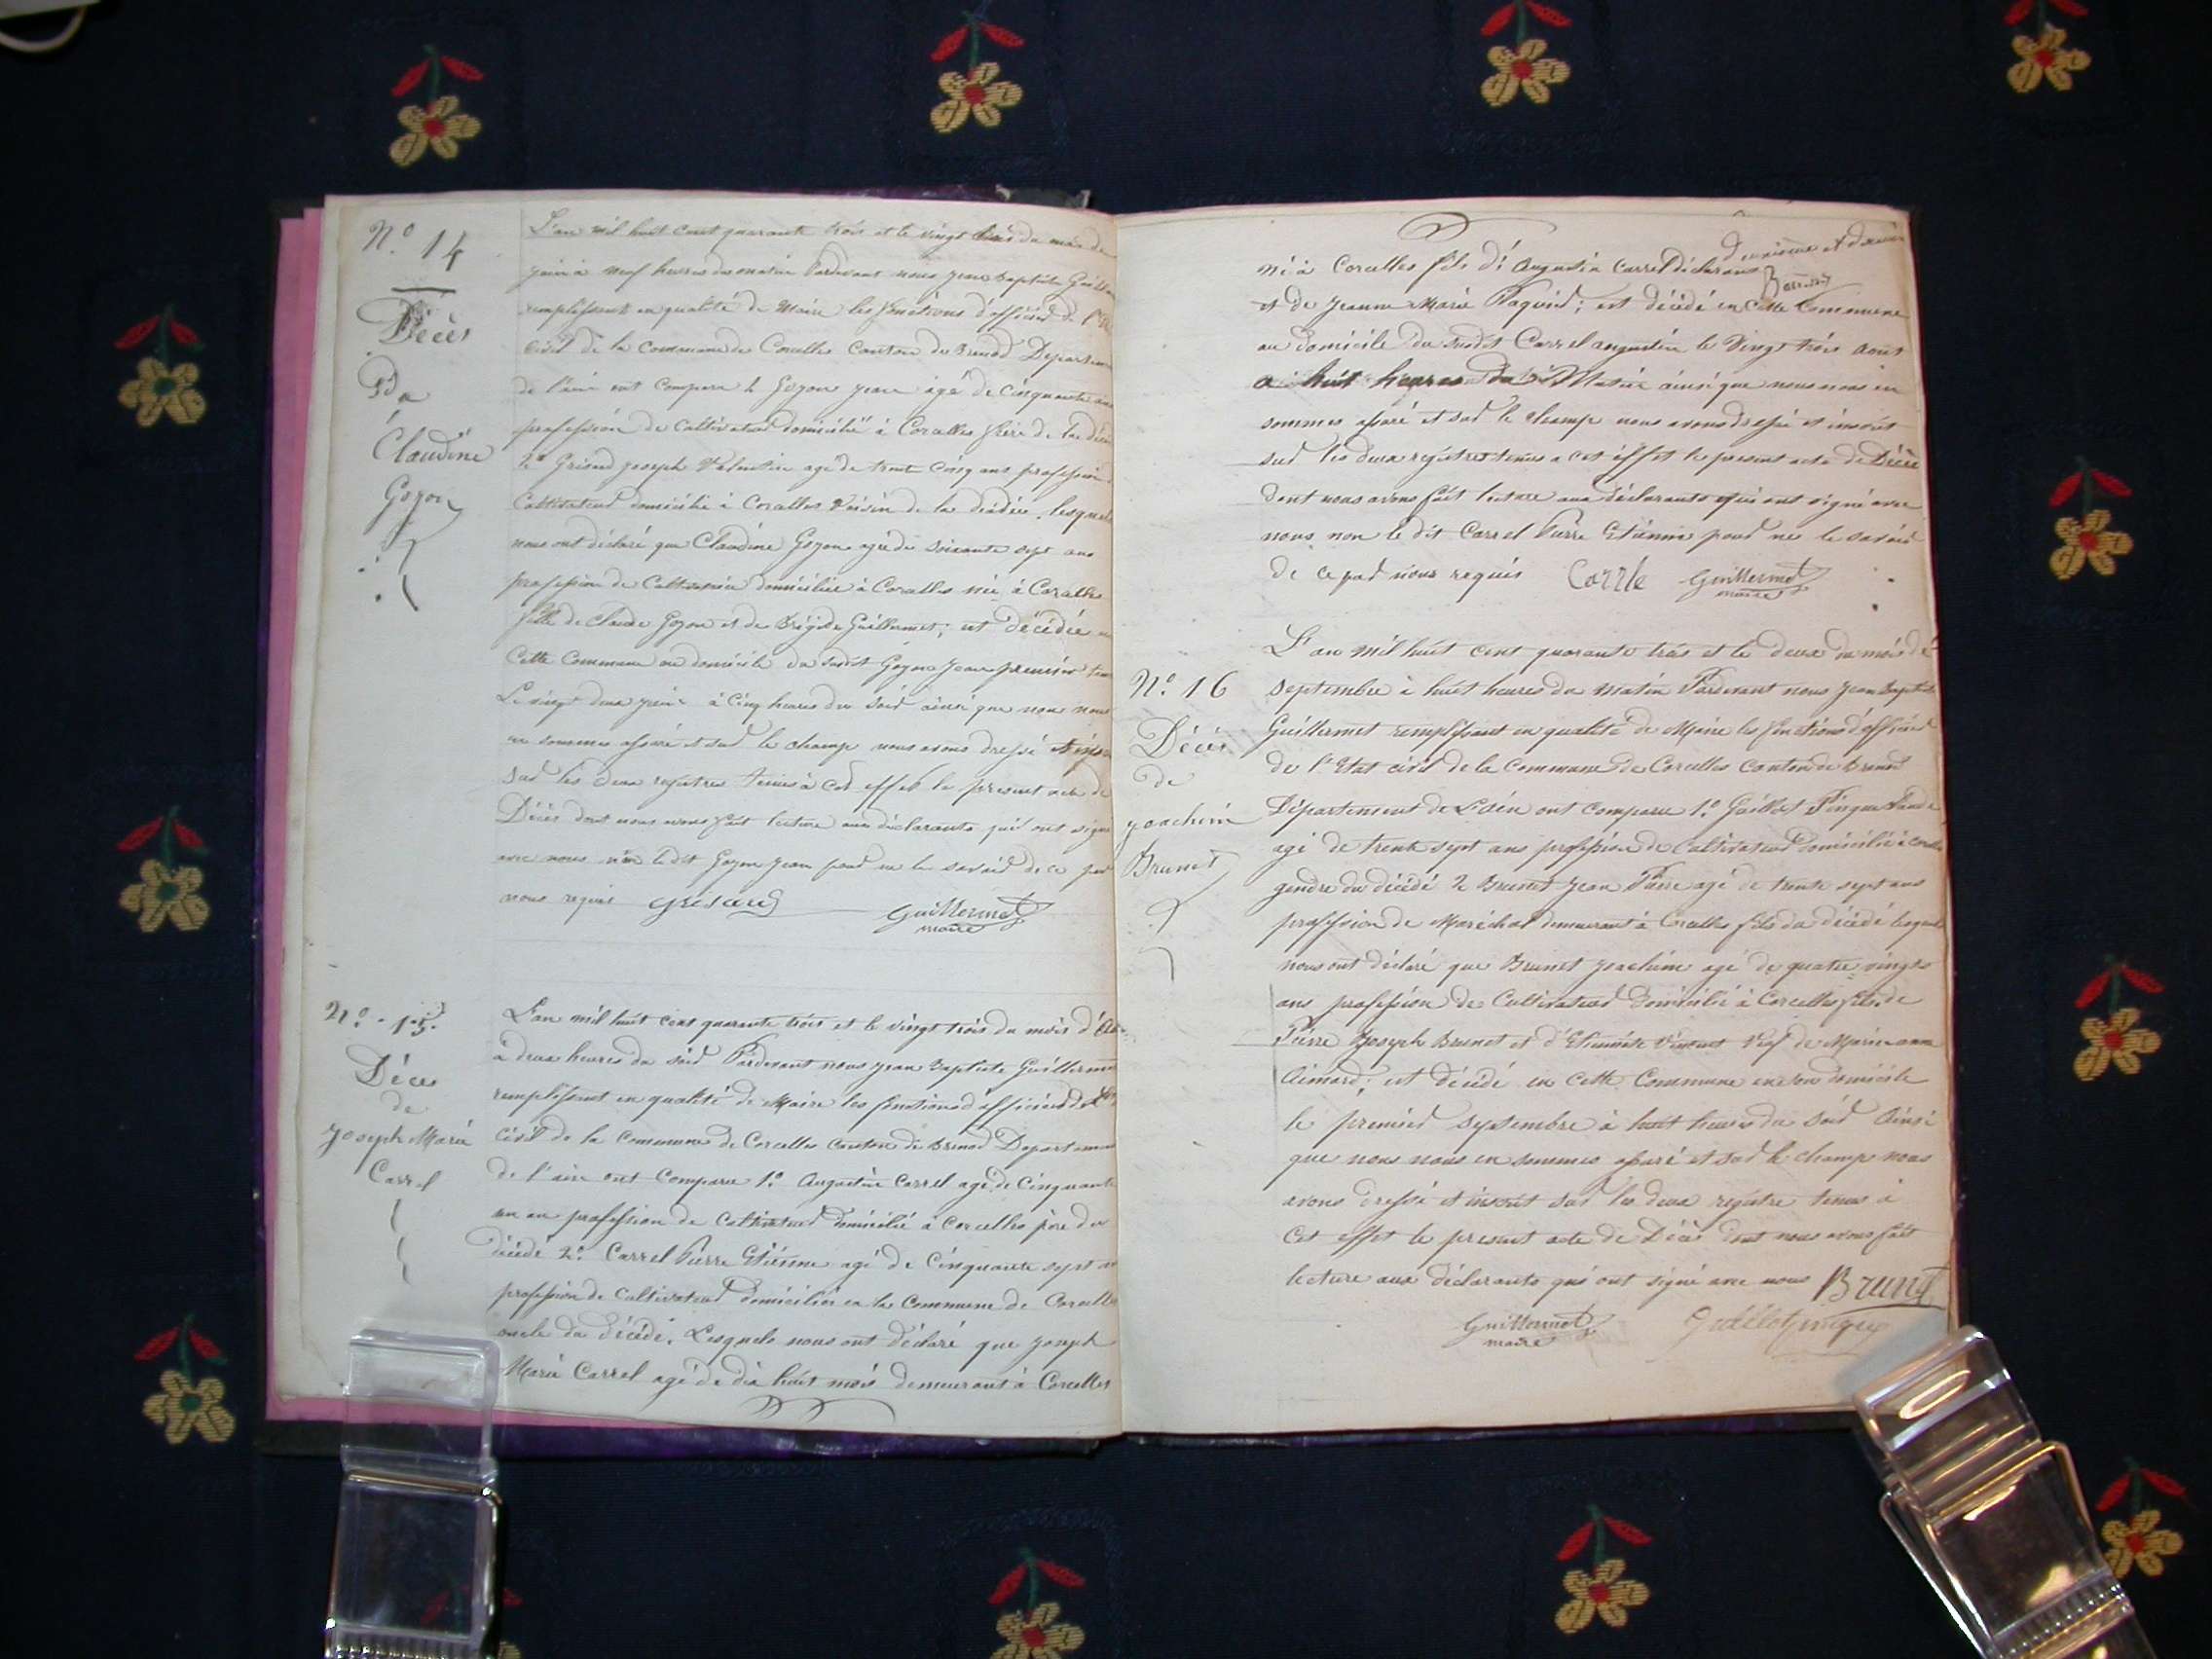 N.o 14
Décès
De
Claudine
Goyon
L'an mil huit cent quarante trois et le vingt trois du mois de
juin à neuf heures du matin Pardevant nous jean Baptiste
remplissant en qualité de Maire les fonctions d'officier de
civil de la commune de Corcelles canton de Brenod Departement
de l'ain ont comparu 1.o Goyon jean agé de cinquante ans
profession de Cultivateur domicilié à Corcelles frère de la
2.o joseph Valentin agé de trente cinq ans profession
Cultivateur domicilié à Corcelles voisin de la décédée, lesquels
nous ont déclaré que Claudine Goyon agée de soixante sept ans
profession de Cultivatrice domiciliée à Corcelles née à Corcelles
fille de Claude Goyon et de Brigide Guillermet; est décédée en
cette Commune au domicile du susdit Goyon jean premier
Le vingt deux juin à cinq heures du soir ainsi que nous nous
en sommes assuré et sur le champ nous avons dressé et
sur les deux registres tenus à cet effet le present acte de
Décès dont nous avons fait lecture aux déclarants qui ont signé
avec nous non le dit Goyon jean pour ne le savoir de ce par
nous requis Guillermet
maire
N.o 15.
Déces
de
Joseph Marie
Carrel
L'an mil huit cent quarante trois et le vingt trois du mois
à deux heures du soir Pardevant nous jean Baptiste Guillermet
remplissant en qualité de Maire les fonctions d'officier de
civil de la commune de Corcelles canton de Brenod Departement
de l'ain ont comparu 1.o Augustin Carrel agé de cinquante
un an profession de Cultivateur domicilié à Corcelles père du
décédé 2.o Carrel Pierre Etienne agé de cinquante sept
profession de cultivateur domicilié en la Commune de Corcelles
oncle du décédé. Lesquels nous ont déclaré que joseph
Marie Carrel agé de dix huit mois demeurant à Corcelles
né à Corcelles fils d'Augustin Carrel
et de jeanne Marie ; est décédé en cette Commune
au domicile du susdit Carrel augustin le vingt trois août
a huit heures du Matin ainsi que nous nous en
sommes assuré et sur le champ nous avons dressé et inscrit
sur les deux registres tenus a cet effet le present acte de Décès
dont nous avons fait lecture aux déclarants qui ont signé avec
nous non le dit Carrel Pierre Etienne pour ne le savoir
de ce par nous requis Guillermet
maire
N.o 16
Décès
de
joachim
Brunet
L'an mil huit cent quarante trois et le deux du mois de
septembre à huit heures du matin Pardevant nous jean Baptiste
Guillermet remplissant en qualité de Maire les fonctions d'officier
de l'Etat civil de la Commune de Corcelles canton de Brenod
Département de L'ain ont comparu 1.o
agé de trente sept ans profession de Cultivateur domicilié à
gendre du décédé 2 Brunet jean Pierre agé de trente sept ans
profession de Maréchal demeurant à Corcelles fils du décédé lesquels
nous ont déclaré que Brunet joachim agé de quatre vingts
ans profession de Cultivateur domicilié à Corcelles fils de
Pierre Joseph Brunet et d' veuf de Marie anne
Aimard; est décédé en cette Commune en son domicile
le premier septembre à huit heures du soir Ainsi
que nous nous en sommes assuré et sur le champ nous
avons dressé et inscrit sur les deux registre tenus à
cet effet le present acte de Décès dont nous avons fait
lecture aux déclarants qui ont signé avec nous Brunet
Guillermet
maire